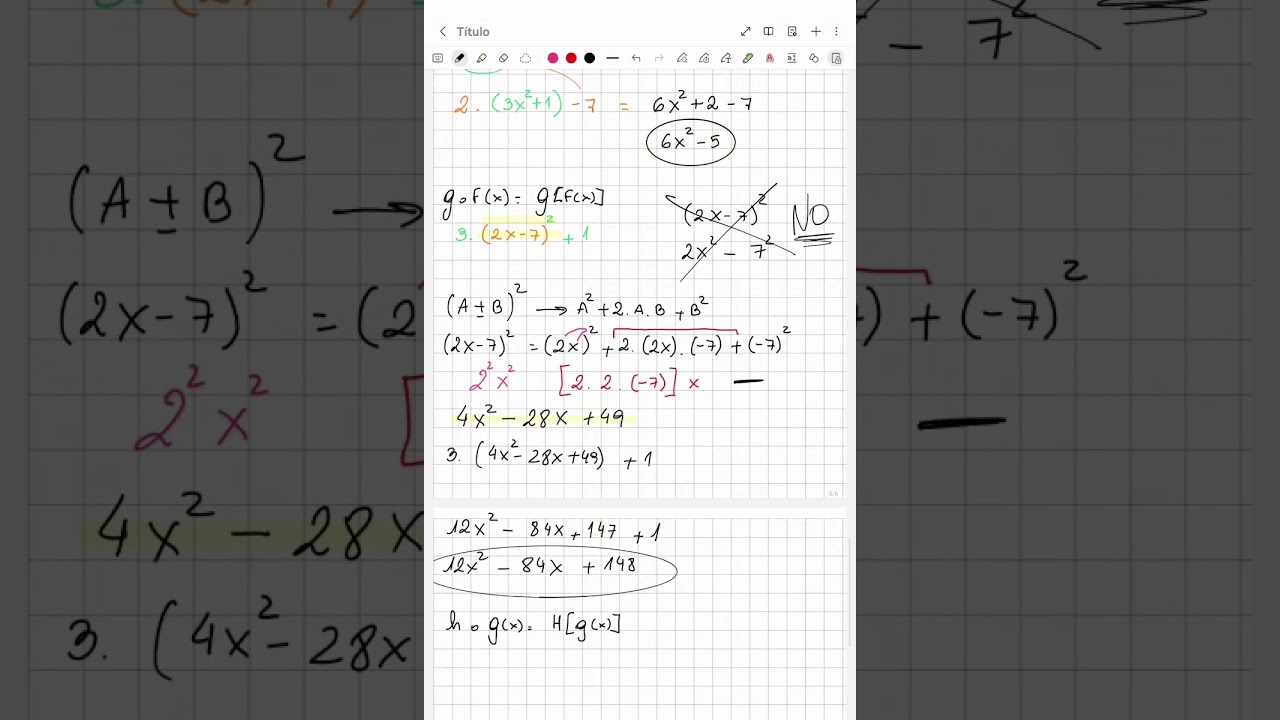 Título
2. (3x²+1) - 7 = 6x² + 2 - 7
6x² - 5
g∘F(x) = g[F(x)]
3. (2x-7)² + 1
(2x-7)²
2x² - 7²
NO
(A ± B)² → A² + 2.A.B + B²
(2x-7)² = (2x)² + 2.(2x).(-7) + (-7)²
2² x² [2. 2. (-7)] x —
4x² - 28x + 49
3. (4x² - 28x + 49) + 1
5/6
12x² - 84x + 147 + 1
12x² - 84x + 148
h∘g(x) = H[g(x)]
- 7²
(A ± B)² →
(2x-7)² = (2
) + (-7)²
2² x² [
4x² - 28x
3. (4x² - 28x